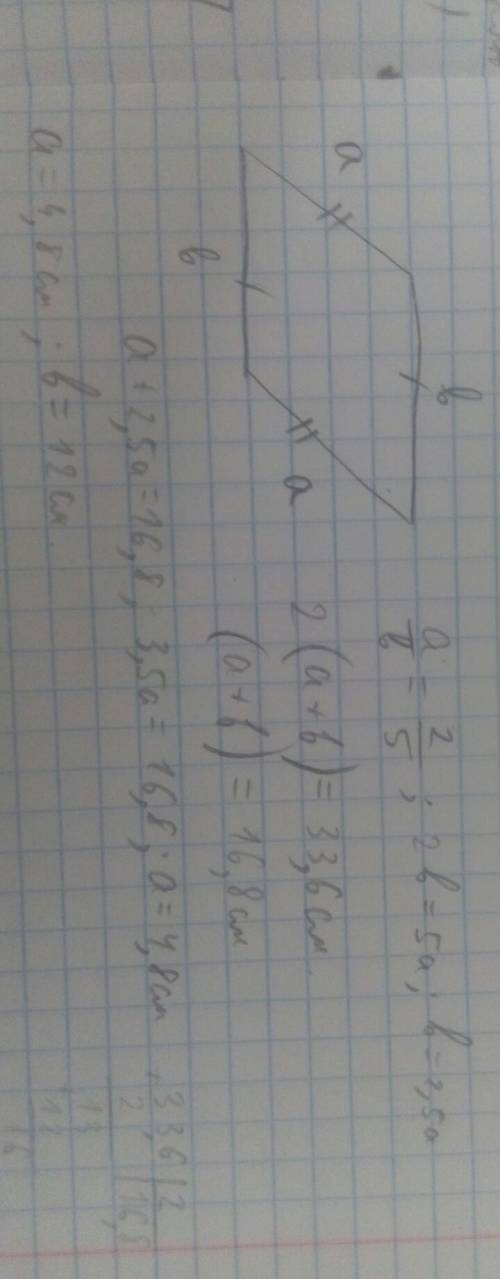 a
b
b
a
a/b = 2/5 ; 2b = 5a ; b = 2,5a
2(a+b) = 33,6 см.
(a+b) = 16,8 см
a + 2,5a = 16,8 ; 3,5a = 16,8 ; a = 4,8 см
a = 4,8 см ; b = 12 см.
33,6 | 2
2 | 16,8
13
12
16